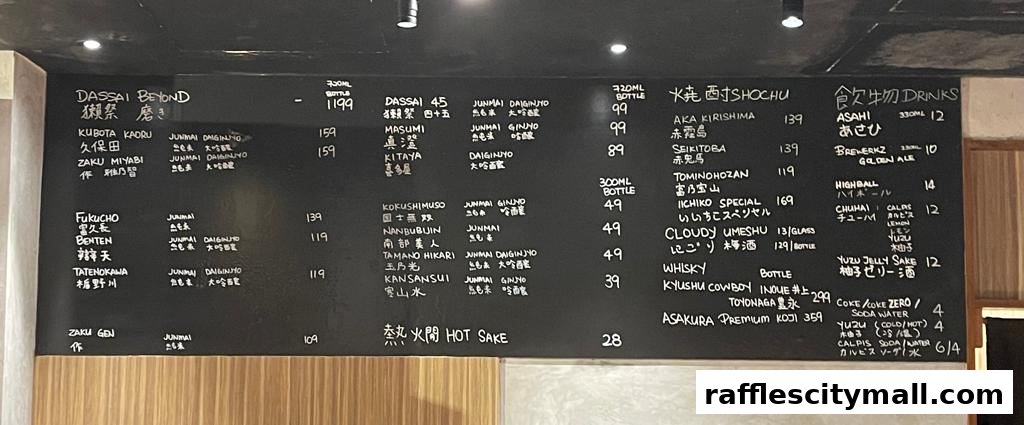 720ML
BOTTLE
DASSAI BEYOND - 1199
獺祭 磨き
KUBOTA KAORU JUNMAI DAIGINJYO 159
久保田 純米 大吟醸
ZAKU MIYABI JUNMAI DAIGINJYO 159
作 雅乃智 純米 大吟醸
FUKUCHO JUNMAI 139
富久長 純米
BENTEN JUNMAI DAIGINJYO 119
辯天 純米 大吟醸
TATENOKAWA JUNMAI DAIGINJYO 119
楯野川 純米 大吟醸
ZAKU GEN JUNMAI 109
作 純米
720ML
BOTTLE
DASSAI 45 JUNMAI DAIGINJYO 99
獺祭 四十五 純米 大吟醸
MASUMI JUNMAI GINJYO 99
真澄 純米 吟醸
KITAYA DAIGINJYO 89
喜多屋 大吟醸
300ML
BOTTLE
KOKUSHIMUSO JUNMAI GINJYO 49
国士無双 純米 吟醸
NANBUBIJIN JUNMAI 49
南部美人 純米
TAMANO HIKARI JUNMAI DAIGINJYO 49
玉乃光 純米 大吟醸
KANSANSUI JUNMAI GINJYO 39
寒山水 純米 吟醸
熱火閑 HOT SAKE 28
焼酎 SHOCHU
AKA KIRISHIMA 139
赤霧島
SEIKITOBA 139
赤兎馬
TOMINOHOZAN 119
富乃宝山
IICHIKO SPECIAL 169
いいちこスペシャル
CLOUDY UMESHU 13/GLASS
にごり梅酒 129/BOTTLE
WHISKY BOTTLE
KYUSHU COWBOY INOUE 井上
TOYONAGA 豊永 299
ASAKURA PREMIUM KOJI 359
飲物 DRINKS
ASAHI 330ML 12
あさひ
BREWERKZ 330ML 10
GOLDEN ALE
HIGHBALL 14
ハイボール
CHUHAI : CALPIS 12
チューハイ カルピス
LEMON
レモン
YUZU
柚子
YUZU JELLY SAKE 12
柚子ゼリー酒
COKE/COKE ZERO/
SODA WATER 4
YUZU (COLD/HOT) 4
柚子 (冷/温)
CALPIS SODA/WATER 6/4
カルピス ソーダ/水
rafflescitymall.com